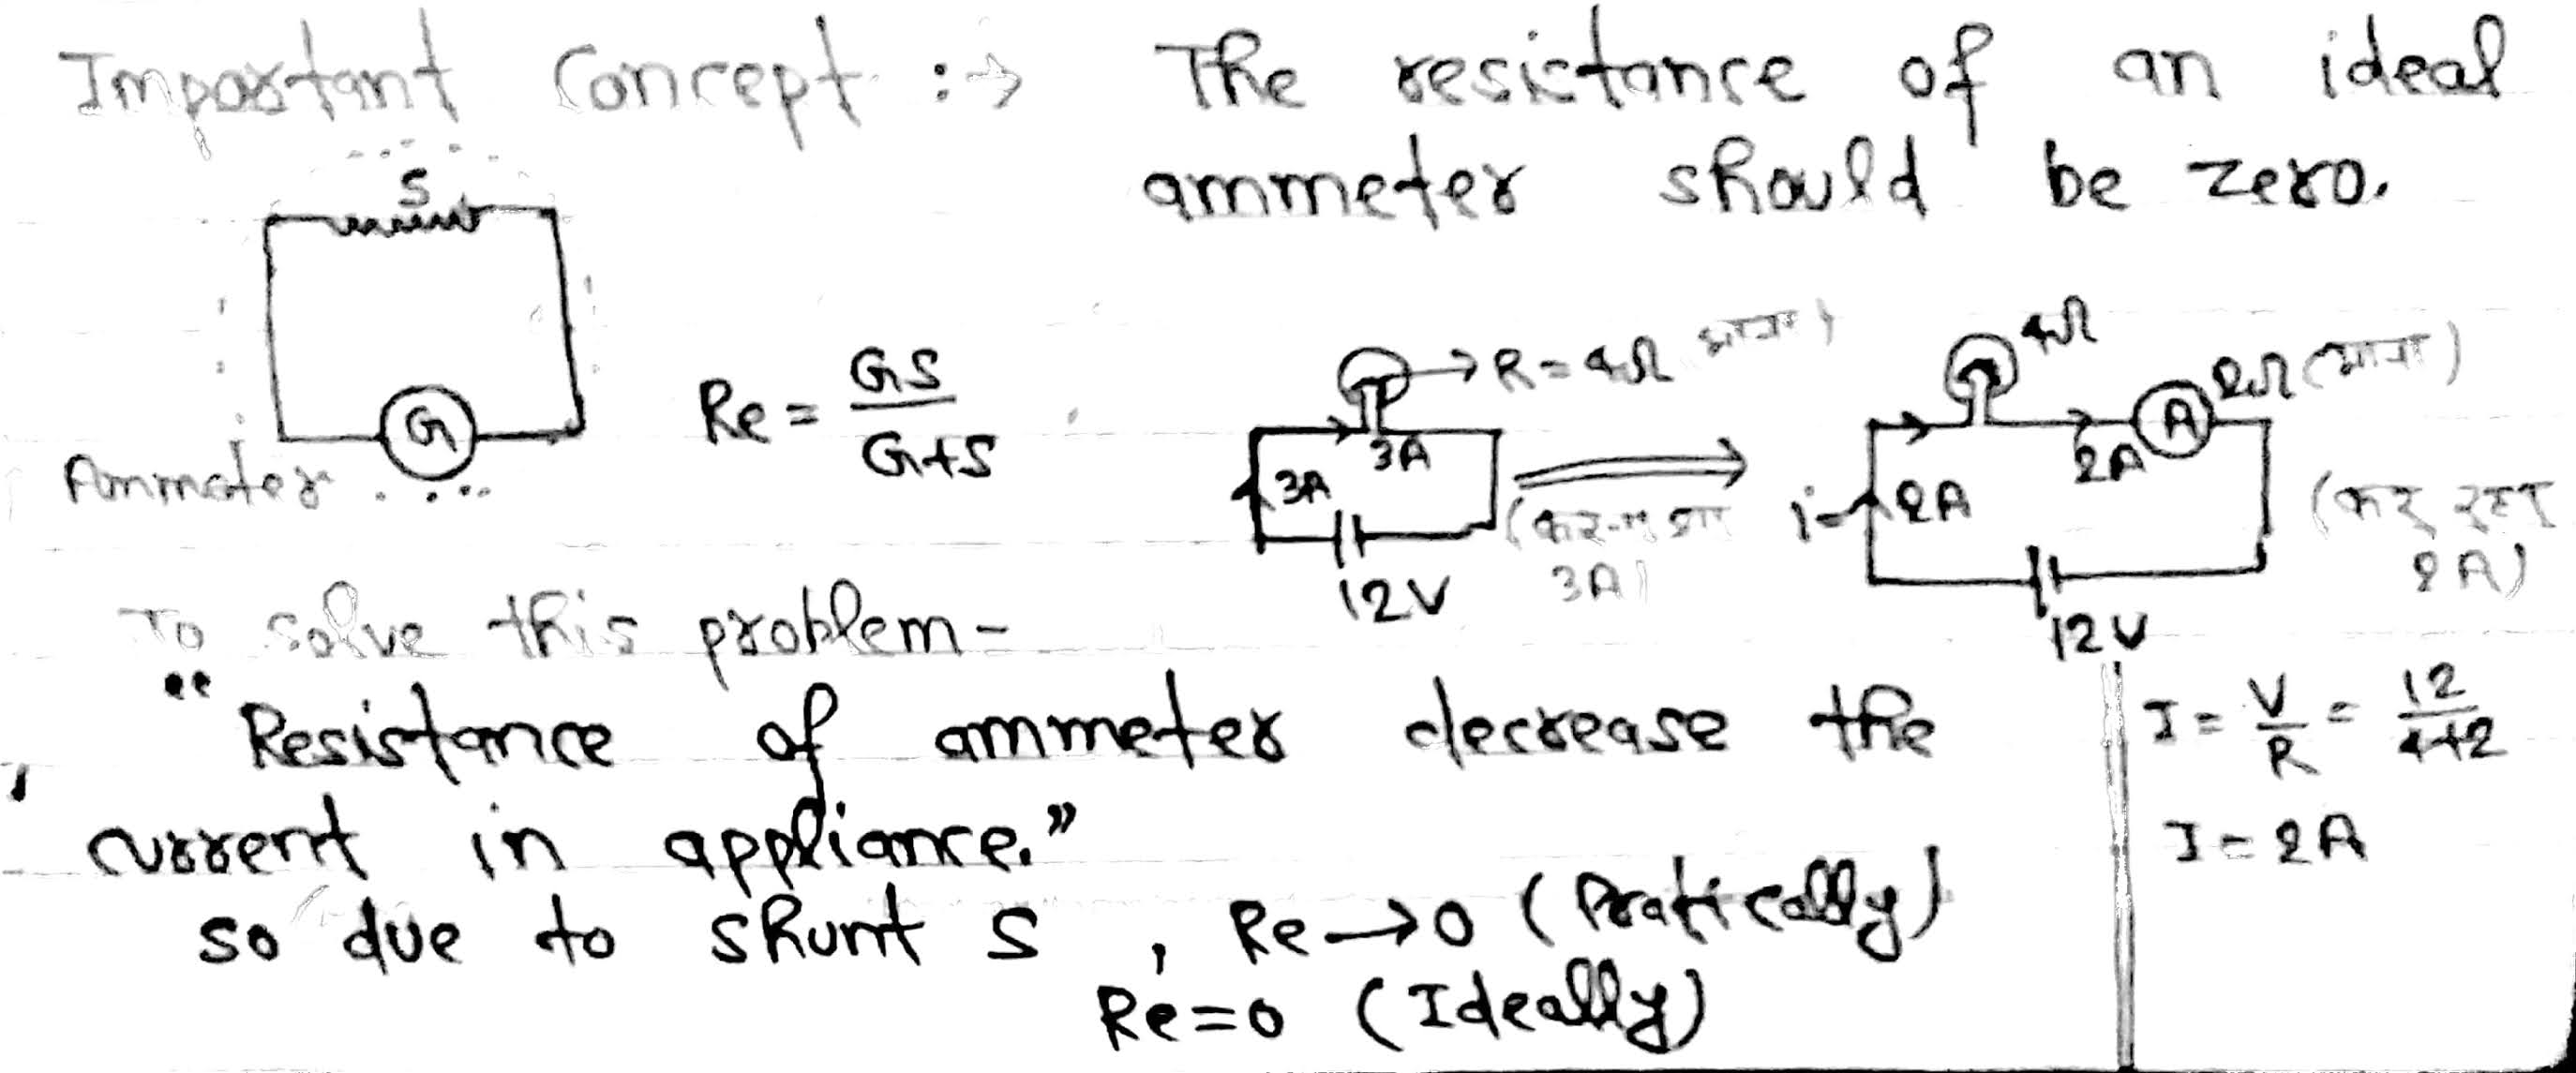 Important Concept :→ The resistance of an ideal
ammeter should be zero.
S
G
Ammeter
Re = GS / G+S
R = 4Ω (माना)
3A
3A
12V
3A)
4Ω
2Ω (माना)
A
2A
i = 2A
12V
2A)
To solve this problem -
"Resistance of ammeter decrease the
current in appliance."
so due to shunt S , Re → 0 (Pratically)
Re = 0 (Ideally)
I = V/R = 12/4+2
I = 2A